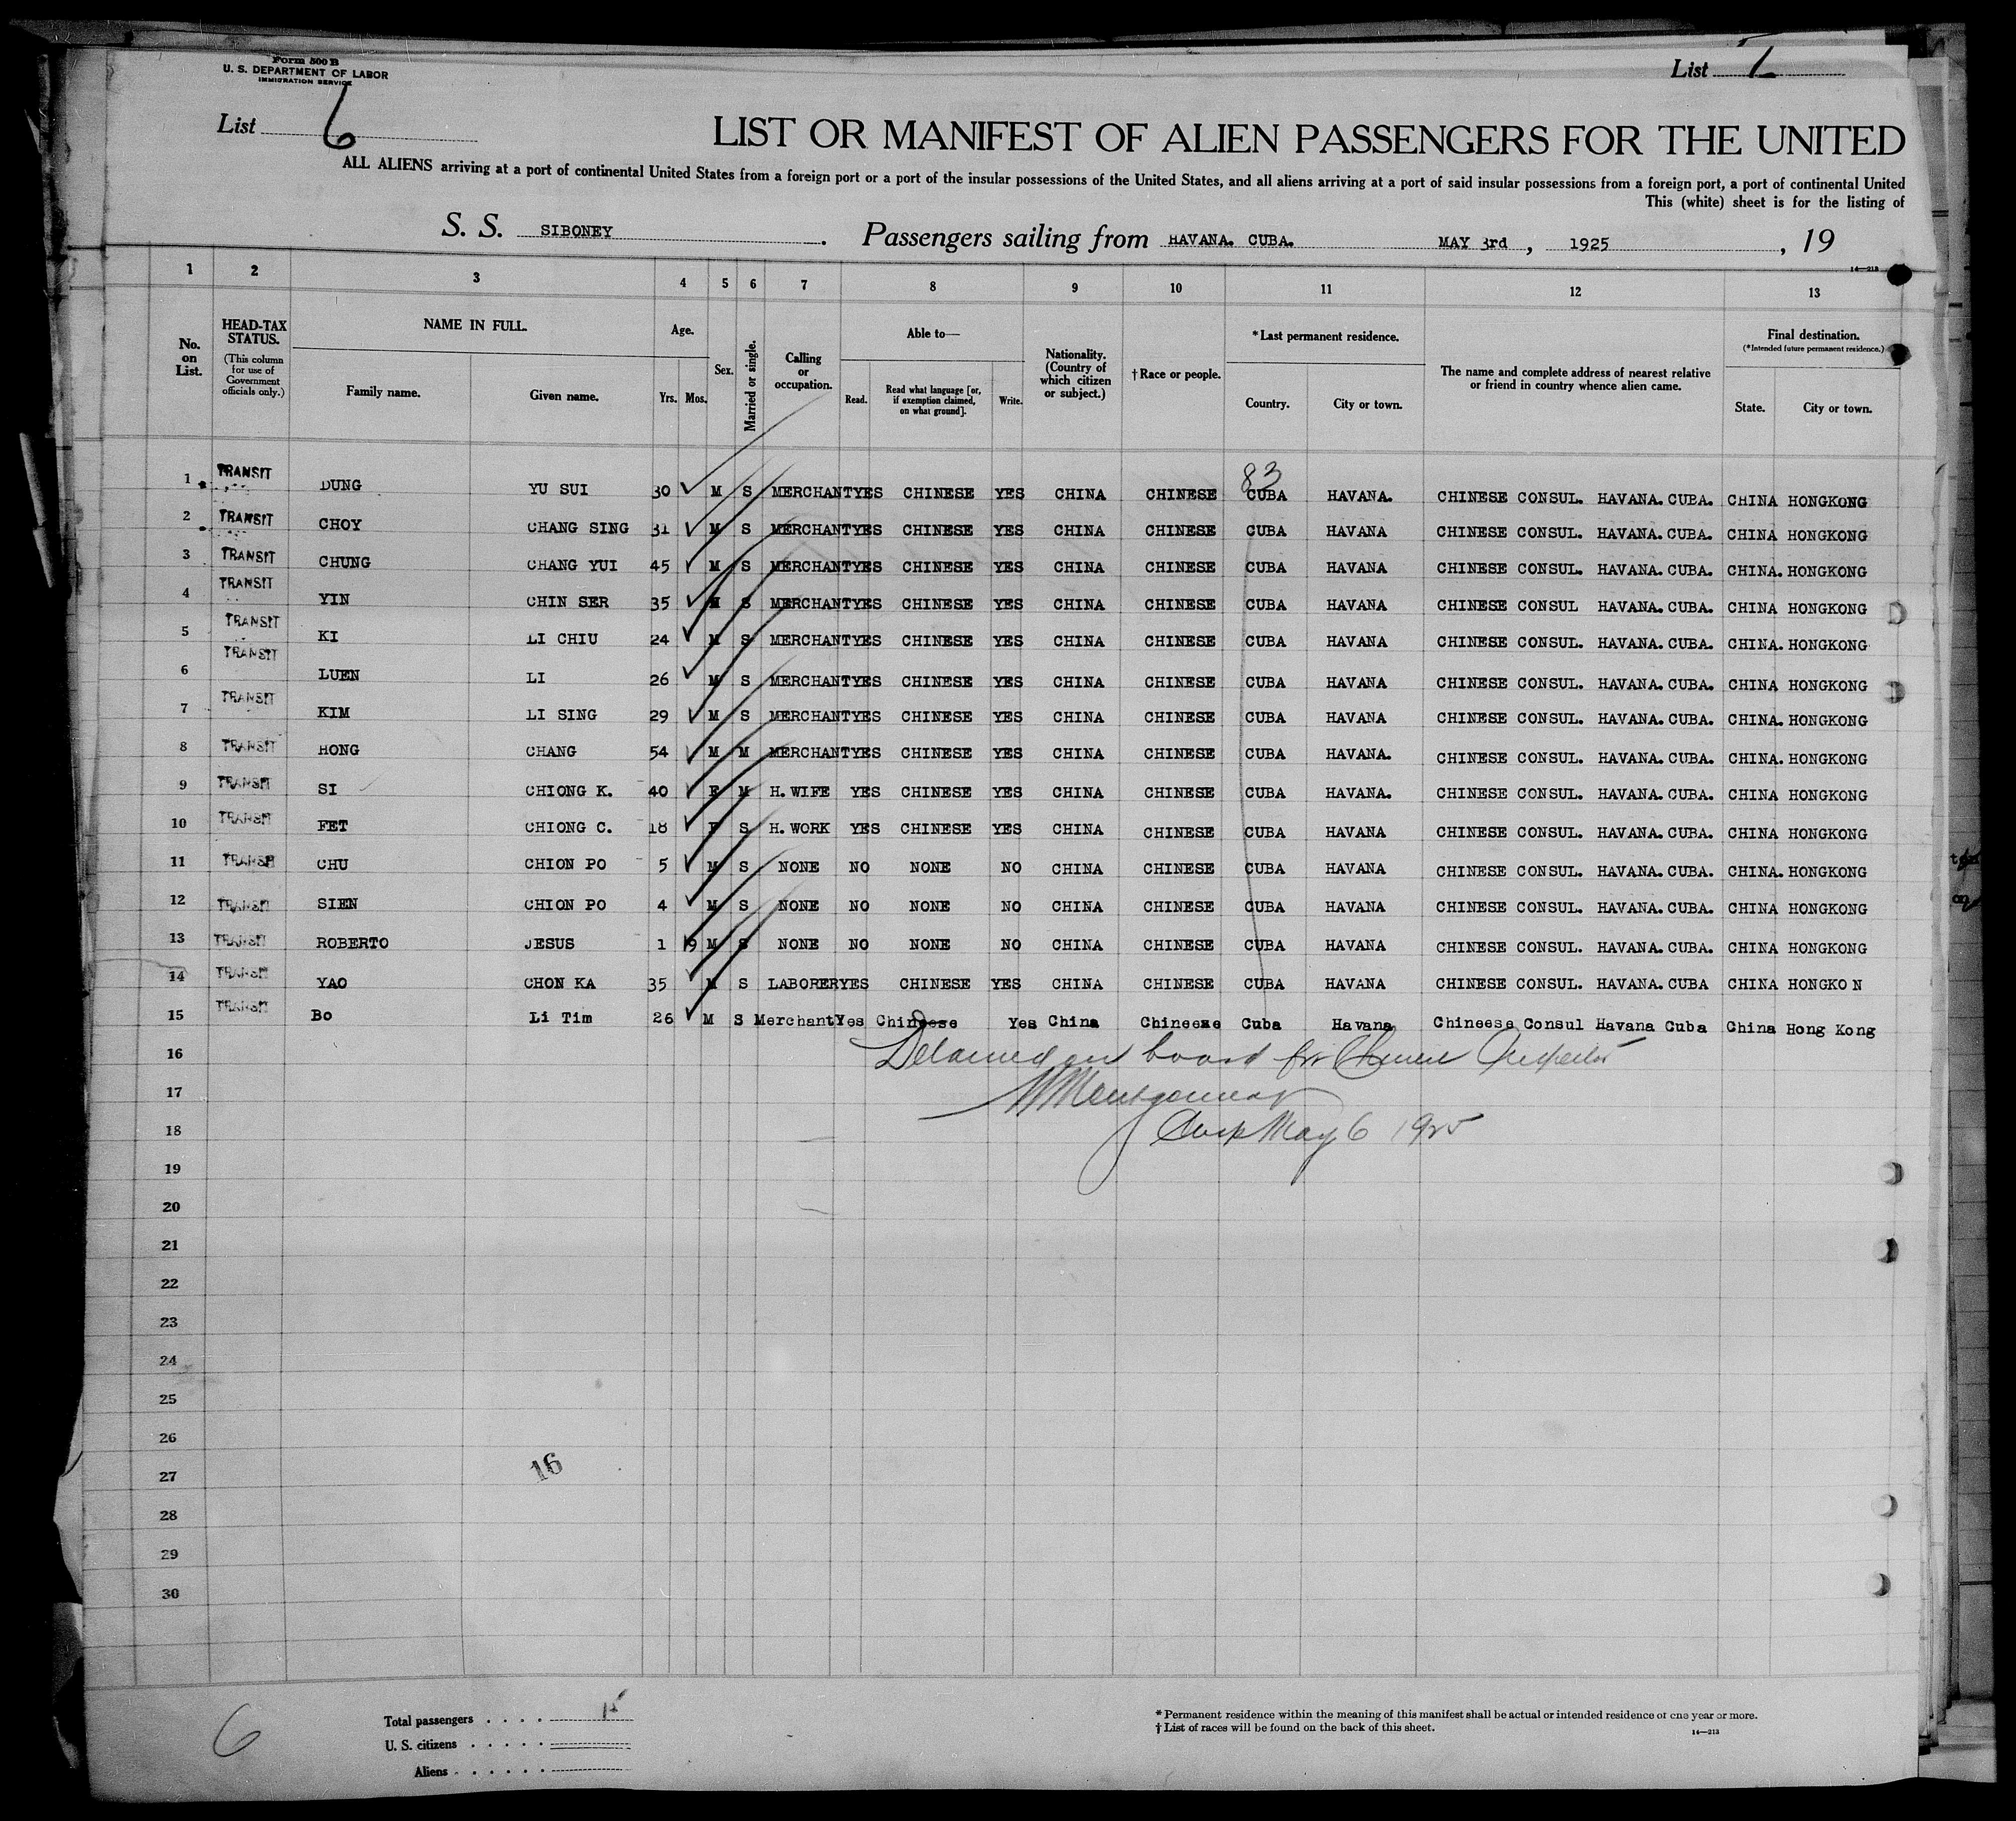 Form 500 B
U. S. DEPARTMENT OF LABOR
IMMIGRATION SERVICE
List 6
List 1
LIST OR MANIFEST OF ALIEN PASSENGERS FOR THE UNITED
ALL ALIENS arriving at a port of continental United States from a foreign port or a port of the insular possessions of the United States, and all aliens arriving at a port of said insular possessions from a foreign port, a port of continental United
This (white) sheet is for the listing of
S. S. SIBONEY. Passengers sailing from HAVANA. CUBA. MAY 3rd, 1925, 19
14—213
1 2 3 4 5 6 7 8 9 10 11 12 13
No. on List.
HEAD-TAX STATUS. (This column for use of Government officials only.)
NAME IN FULL.
Family name. Given name.
Age. Yrs. Mos.
Sex.
Married or single.
Calling or occupation.
Able to—
Read. Read what language [or, if exemption claimed, on what ground]. Write.
Nationality. (Country of which citizen or subject.)
†Race or people.
*Last permanent residence.
Country. City or town.
The name and complete address of nearest relative or friend in country whence alien came.
Final destination. (*Intended future permanent residence.)
State. City or town.
83
1 TRANSIT DUNG YU SUI 30 M S MERCHANT YES CHINESE YES CHINA CHINESE CUBA HAVANA. CHINESE CONSUL. HAVANA. CUBA. CHINA HONGKONG
2 TRANSIT CHOY CHANG SING 31 M S MERCHANT YES CHINESE YES CHINA CHINESE CUBA HAVANA CHINESE CONSUL. HAVANA. CUBA. CHINA HONGKONG
3 TRANSIT CHUNG CHANG YUI 45 M S MERCHANT YES CHINESE YES CHINA CHINESE CUBA HAVANA CHINESE CONSUL. HAVANA. CUBA. CHINA. HONGKONG
4 TRANSIT YIN CHIN SER 35 M S MERCHANT YES CHINESE YES CHINA CHINESE CUBA HAVANA CHINESE CONSUL HAVANA. CUBA. CHINA HONGKONG
5 TRANSIT KI LI CHIU 24 M S MERCHANT YES CHINESE YES CHINA CHINESE CUBA HAVANA CHINESE CONSUL. HAVANA. CUBA. CHINA. HONGKONG
6 TRANSIT LUEN LI 26 M S MERCHANT YES CHINESE YES CHINA CHINESE CUBA HAVANA CHINESE CONSUL. HAVANA. CUBA. CHINA HONGKONG
7 TRANSIT KIM LI SING 29 M S MERCHANT YES CHINESE YES CHINA CHINESE CUBA HAVANA CHINESE CONSUL. HAVANA. CUBA. CHINA. HONGKONG
8 TRANSIT HONG CHANG 54 M M MERCHANT YES CHINESE YES CHINA CHINESE CUBA HAVANA. CHINESE CONSUL. HAVANA. CUBA. CHINA. HONGKONG
9 TRANSIT SI CHIONG K. 40 F M H. WIFE YES CHINESE YES CHINA CHINESE CUBA HAVANA. CHINESE CONSUL. HAVANA. CUBA. CHINA HONGKONG
10 TRANSIT FET CHIONG C. 18 F S H. WORK YES CHINESE YES CHINA CHINESE CUBA HAVANA CHINESE CONSUL. HAVANA. CUBA. CHINA HONGKONG
11 TRANSIT CHU CHION PO 5 M S NONE NO NONE NO CHINA CHINESE CUBA HAVANA CHINESE CONSUL. HAVANA. CUBA. CHINA. HONGKONG
12 TRANSIT SIEN CHION PO 4 M S NONE NO NONE NO CHINA CHINESE CUBA HAVANA CHINESE CONSUL. HAVANA. CUBA. CHINA HONGKONG
13 TRANSIT ROBERTO JESUS 1 9 M S NONE NO NONE NO CHINA CHINESE CUBA HAVANA CHINESE CONSUL. HAVANA. CUBA. CHINA HONGKONG
14 TRANSIT YAO CHON KA 35 M S LABORER YES CHINESE YES CHINA CHINESE CUBA HAVANA CHINESE CONSUL. HAVANA. CUBA CHINA HONGKO N
15 TRANSIT Bo Li Tim 26 M S Merchant Yes Chineese Yes China Chineexe Cuba Havana Chineese Consul Havana Cuba China Hong Kong
16 Detained on board for Chinese Inspector
17 Montgomery
18 Insp May 6 1925
19
20
21
22
23
24
25
26
16
27
28
29
30
6
Total passengers 15
U. S. citizens
Aliens
* Permanent residence within the meaning of this manifest shall be actual or intended residence of one year or more.
† List of races will be found on the back of this sheet.
14—213